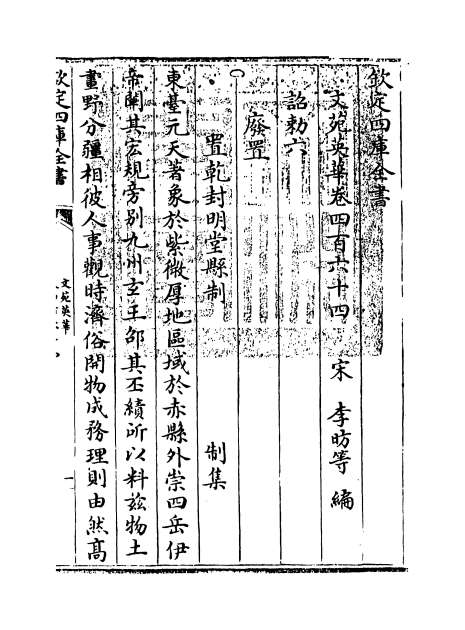 欽定四庫全書
文苑英華卷四百六十四
宋 李昉等 編
詔勅六
廢置
置乾封明堂縣制 制集
東臺元天著象於紫微厚地區域於赤縣外崇四岳伊
帝闡其宏規旁別九州玄王邵其丕績所以料茲物土
畫野分疆相彼人事觀時濟俗開物成務理則由然髙
欽定四庫全書
文苑英華
一